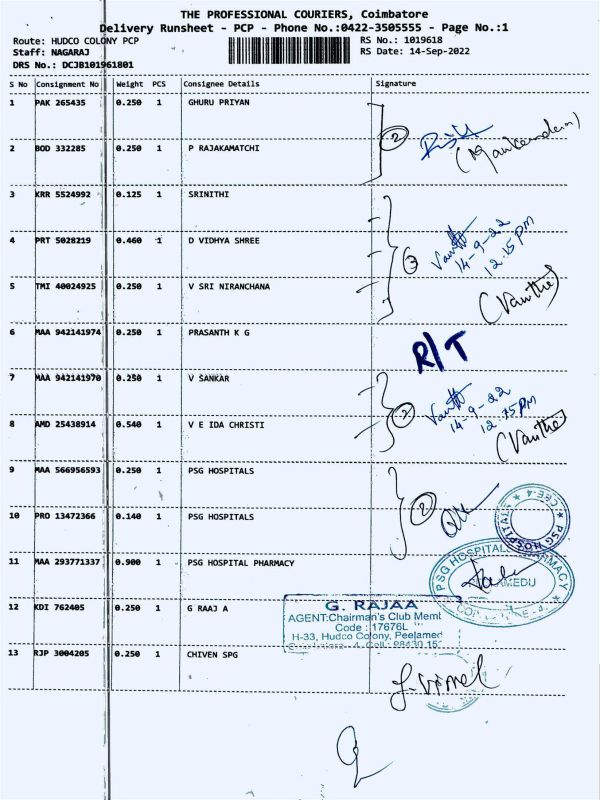 THE PROFESSIONAL COURIERS, Coimbatore
Delivery Runsheet - PCP - Phone No.:0422-3505555 - Page No.:1
Route: HUDCO COLONY PCP
Staff: NAGARAJ
DRS No.: DCJB101961801
RS No.: 1019618
RS Date: 14-Sep-2022
S No Consignment No Weight PCS Consignee Details Signature
1 PAK 265435 0.250 1 GHURU PRIYAN
2 BOD 332285 0.250 1 P RAJAKAMATCHI
2
3 KRR 5524992 0.125 1 SRINITHI
4 PRT 5028219 0.460 1 D VIDHYA SHREE
3
14-9-22
12.15 PM
5 TMI 40024925 0.250 1 V SRI NIRANCHANA
(Vanitha)
6 MAA 942141974 0.250 1 PRASANTH K G
R/T
7 MAA 942141970 0.250 1 V SANKAR
8 AMD 25438914 0.540 1 V E IDA CHRISTI
2
14-9-22
12.15 PM
(Vanitha)
9 MAA 566956593 0.250 1 PSG HOSPITALS
10 PRO 13472366 0.140 1 PSG HOSPITALS
2
PSG HOSPITALS
CBE-4
11 MAA 293771337 0.900 1 PSG HOSPITAL PHARMACY
PSG HOSPITAL PHARMACY
12 KDI 762405 0.250 1 G RAAJ A
G. RAJAA
AGENT:Chairman's Club Memb
Code : 17676L
H-33, Hudco Colony, Peelamed
13 RJP 3004205 0.250 1 CHIVEN SPG